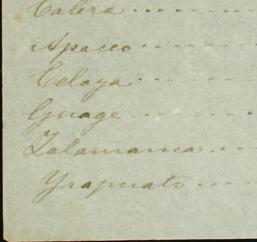 Calera
Apaceo
Celaya
Guage
Zalamanca
Yrapuato